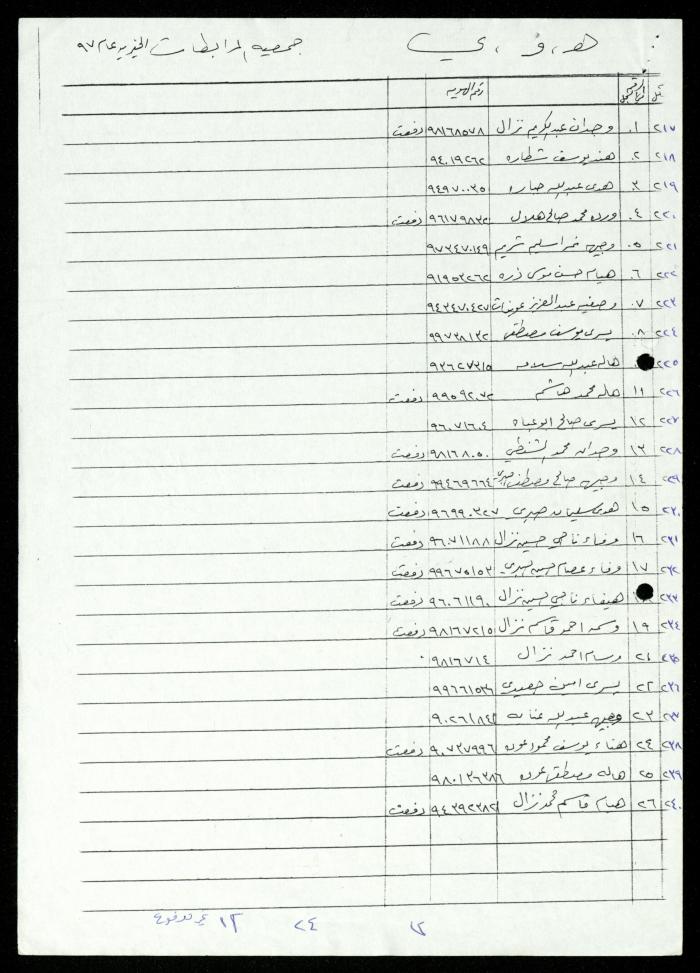 هـ ، و ، ي جمعيه المرابطات الخيريه عام ٩٧
رقم الهويه
٢١٧ ١. وجدان عبدالكريم نزال ٩٨١٦٨٥٧٨ دفعت
٢١٨ ٢. هند يوسف شطاره ٩٤٠١٩٢٦٢
٢١٩ ٣. هدى عبدالله جباره ٩٤٩٧٠٠٣٥
٢٢٠ ٤. ورده محمد صالح هلال ٩٦١٧٩٨٣٢ دفعت
٢٢١ ٥. وجيهه نمر اسليم شريم ٩٧٣٤٧٠١٤٩
٢٢٢ ٦. هيام حسن موسى ذره ٩١٩٥٣٢٦٢
٢٢٣ ٧. وصفيه عبدالعزيز ٩٤٣٤٧٠٤٢٧
٢٢٤ ٨. يسرى يوسف مصطفى ٩٩٧٣٨١٣٢
٢٢٥ هاله عبدالله سلامه ٩٣٦٢٧٣١٥
٢٢٦ ١١ هاله محمد هاشم ٩٩٥٩٢٠٧٢ دفعت
٢٢٧ ١٢ يسرى صالح ابوعباه ٩٦٠٧١٦٠٤
٢٢٨ ١٣ وجدان محمد الشنطي ٩٨١٦٨٠٥٠ دفعت
٢٢٩ ١٤ وجيهه صالح مصطفى ٩٩٤٦٩٦٦٤ دفعت
٢٣٠ ١٥ هدى سليمان صبري ٩٦٩٩٠٣٢٧ دفعت
٢٣١ ١٦ وفاء ناجي حسين نزال ٩٦٠٧١١٨٨ دفعت
٢٣٢ ١٧ وفاء عصام حسين ٩٩٦٧٥١٥٣ دفعت
٢٣٣ ١٨ هيفاء ناجي حسين نزال ٩٦٠٦١١٩٠ دفعت
٢٣٤ ١٩ وسمه احمد قاسم نزال ٩٨١٦٧٢١٥ دفعت
٢٣٥ ٢١ وسام احمد نزال ٩٨١٦٧١٤
٢٣٦ ٢٢ يسرى امين جعيدي ٩٩٦٦١٥٣٦
٢٣٧ ٢٣ وجيهه عبدالله عنايه ٩٠٢٦١٨٤٢
٢٣٨ ٢٤ هناء يوسف محمود عوده ٩٠٧٣٧٩٩٦ دفعت
٢٣٩ ٢٥ هاله مصطفى عوده ٩٨٠١٣٦٣٨٦
٢٤٠ ٢٦ هيام قاسم محمد نزال ٩٤٣٩٢٣٨٢ دفعت
١٢ ٢٤ ١٢ غير مدفوع